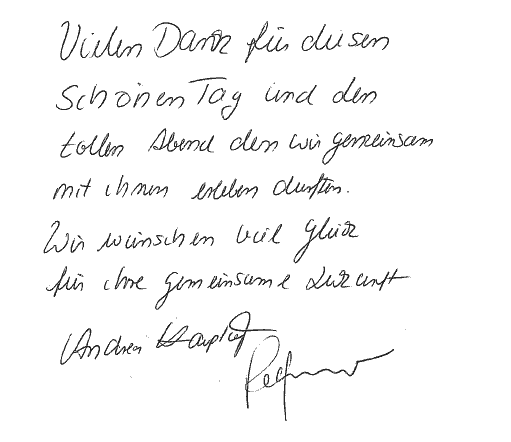 Vielen Dank für diesen
schönen Tag und den
tollen Abend den wir gemeinsam
mit ihnen erleben durften.
Wir wünschen viel Glück
für ihre gemeinsame Zukunft
Andrea